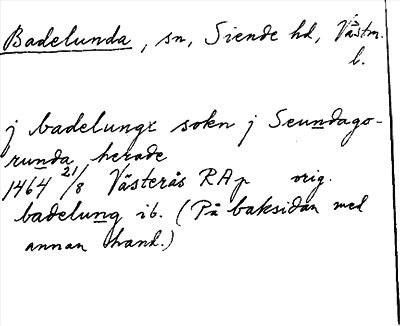 Badelunda, sn, Siende hd, Västm.
l.
j badelungx sokn j Seundago-
runda herade
1464 21/8 Västerås RAp orig.
badelung ib. (På baksidan med
annan hand.)